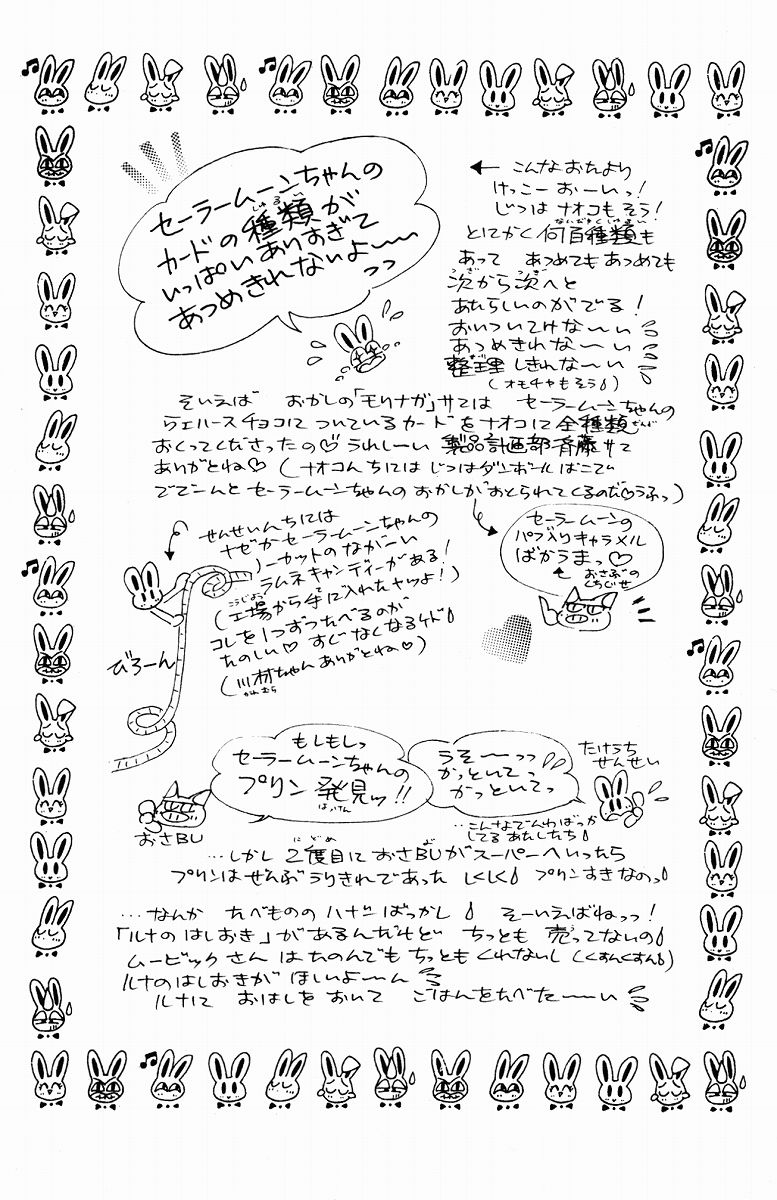 セーラームーンちゃんの
カードの種類が
いっぱいありすぎて
あつめきれないよ〜〜
っっ
← こんなおたより
けっこーおーいっ!
じつは ナオコもそう!
とにかく 何百種類も
あって あつめてもあつめても
次から次へと
あたらしいのがでる!
おいついてけな〜い
あつめきれな〜い
整理しきれな〜い
(オモチャもそう)
そいえば おかしの「モリナガ」サンは セーラームーンちゃんの
ウェハースチョコについているカードをナオコに全種類
おくってくださったの♡うれしーい 製品計画部斉藤サン
ありがとね♡(ナオコんちには じつはダンボールばこで
でで〜んと セーラームーンちゃんの おかしがおくられてくるのだ♡うふっ)
せんせいんちには
ナゼかセーラームーンちゃんの
ノーカットのながーい
ラムネキャンディーがある!
(工場から手に入れたヤツよ!)
コレを1つずつたべるのが
たのしい♡ すぐなくなるケド
(川村ちゃんありがとね♡)
かわむら
びろーん
セーラームーンの
パフ入りキャラメル
ばかうまっ♡
おさぶの
くちぐせ
もしもしっ
セーラームーンちゃんの
プリン発見ッ!!
はっけん
おさBU
うそ〜〜っっ
かっといてっ
かっといてっ
たけうち
せんせい
…こんなでんわばっか
してるあたしたち
…しかし 2度目に おさBUがスーパーへいったら
プリンはぜんぶうりきれであった しくしく プリンすきなのっ
…なんか たべもののハナシばっかし そーいえばねっっ!
「ルナのはしおき」があるんだけど ちっとも 売ってないの
ムービックさん はたのんでも ちっともくれないし(くすんくすん)
ルナのはしおきが ほしいよ〜ん
ルナに おはしを おいて ごはんをたべた〜〜い